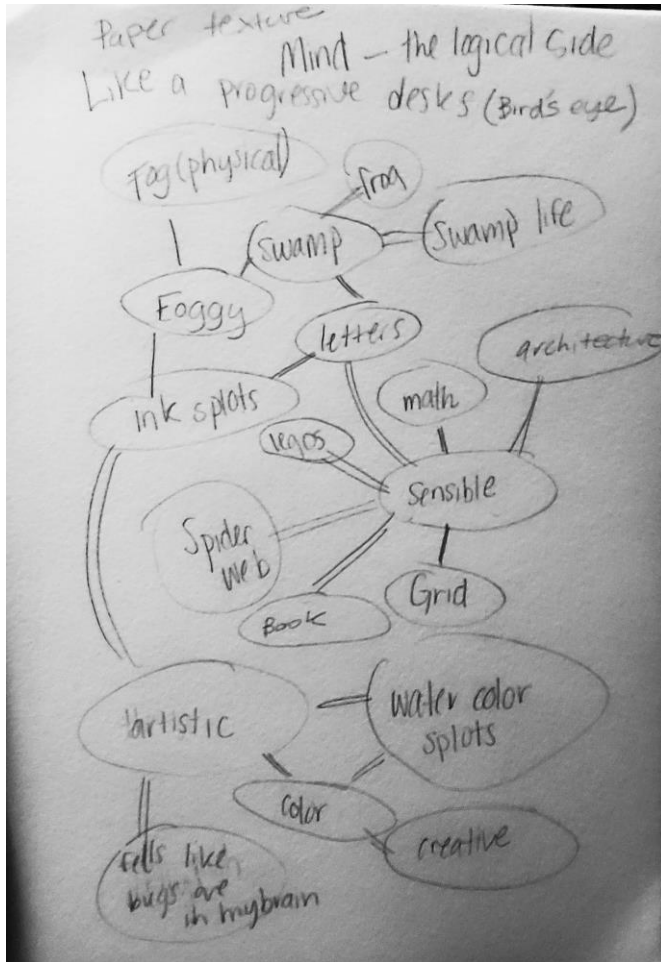 Paper texture
Mind - the logical side
Like a progressive desks (Bird's eye)
Fog (physical)
frog
swamp
Swamp life
Foggy
letters
architecture
ink splots
math
legos
sensible
Spider
web
Grid
Book
artistic
water color
splots
color
creative
fells like
bugs are
in my brain